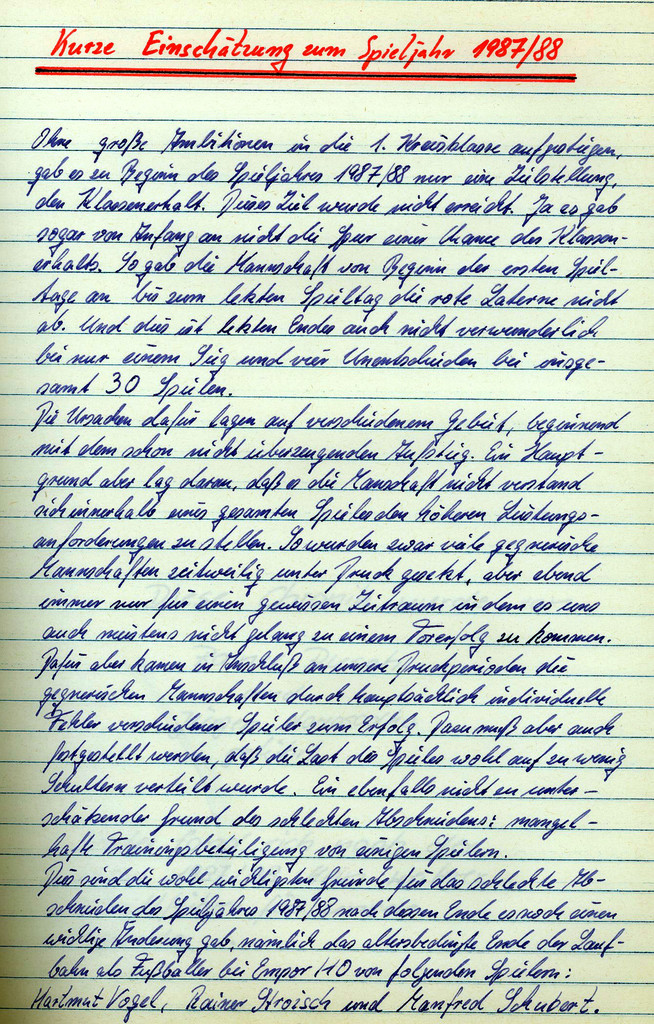 Kurze Einschätzung zum Spieljahr 1987/88
Ohne große Ambitionen in die 1. Kreisklasse aufgestiegen,
gab es zu Beginn des Spieljahres 1987/88 nur eine Zielstellung,
den Klassenerhalt. Dieses Ziel wurde nicht erreicht. Ja es gab
sogar von Anfang an nicht die Spur einer Chance des Klassen-
erhalts. So gab die Mannschaft von Beginn der ersten Spiel-
tage an bis zum letzten Spieltag die rote Laterne nicht
ab. Und dies ist letzten Endes auch nicht verwunderlich
bei nur einem Sieg und vier Unentschieden bei insge-
samt 30 Spielen.
Die Ursachen dafür lagen auf verschiedenem Gebiet, beginnend
mit dem schon nicht überzeugenden Aufstieg. Ein Haupt-
grund aber lag daran, daß es die Manschaft nicht verstand
sich innerhalb eines gesamten Spieles den höheren Leistungs-
anforderungen zu stellen. So wurden zwar viele gegnerische
Mannschaften zeitweilig unter Druck gesetzt, aber ebend
immer nur für einen gewissen Zeitraum in dem es uns
auch meistens nicht gelang zu einem Torerfolg zu kommen.
Dafür aber kamen im Anschluß an unsere Druckperioden die
gegnerischen Mannschaften durch hauptsächlich individuelle
Fehler verschiedener Spieler zum Erfolg. Dazu muß aber auch
festgestellt werden, daß die Last des Spieles wohl auf zu wenig
Schultern verteilt wurde. Ein ebenfalls nicht zu unter-
schätzender Grund des schlechten Abschneidens: mangel-
hafte Trainingsbeteiligung von einigen Spielern.
Dies sind die wohl wichtigsten Gründe für das schlechte Ab-
schneiden des Spieljahres 1987/88 nach dessen Ende es noch einen
wichtige Änderung gab, nämlich das altersbedingte Ende der Lauf-
bahn als Fußballer bei Empor HO von folgenden Spielern:
Hartmut Vogel, Rainer Stroisch und Manfred Schubert.